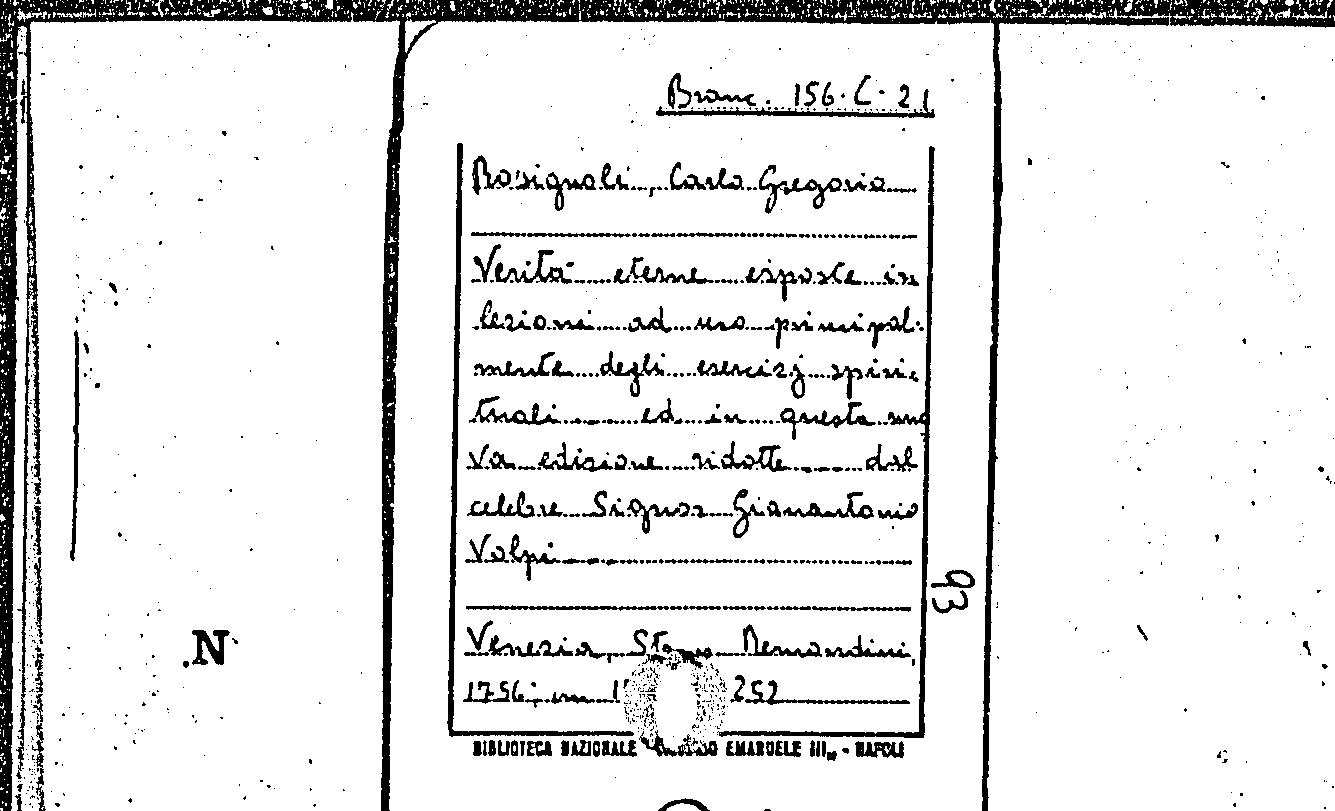 Branc. 156. C. 21
Rosignoli, Carlo Gregorio
Verità eterne esposte in
lezioni ad uso principal-
mente degli esercizj spiri-
tuali ... ed in questa nuo
va edizione ridotte ... dal
celebre Signor Gianantonio
Volpi ...
93
.N
Venezia, Bernardini,
1756; in 252
BIBLIOTECA NAZIONALE EMANUELE III - NAPOLI